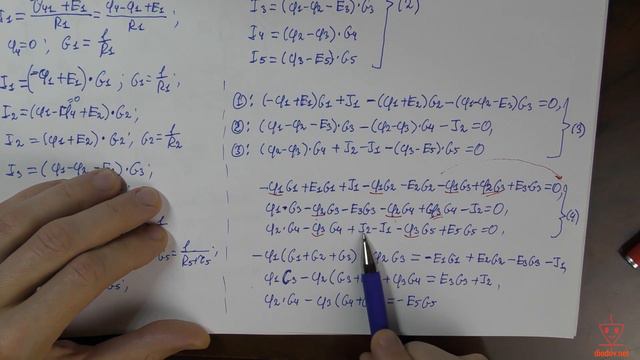 I1 = (φ41 + E1)/R1 = (φ4 - φ1 + E1)/R1 ;
φ4 = 0 ; G1 = 1/R1 ;
I1 = (-φ1 + E1)·G1 ; G1 = 1/R1 ;
I2 = (φ1 - φ4 + E2)·G2 ;
I2 = (φ1 + E2)·G2 ; G2 = 1/R2
I3 = (φ1 - φ2 - E3)·G3 ;
G5 = 1/(R5 + r5) ;
I3 = (φ1 - φ2 - E3)·G3
I4 = (φ2 - φ3)·G4
I5 = (φ3 - E5)·G5
(2)
(1): (-φ1 + E1)G1 + J1 - (φ1 + E2)G2 - (φ1 - φ2 - E3)G3 = 0,
(2): (φ1 - φ2 - E3)·G3 - (φ2 - φ3)·G4 - J2 = 0,
(3): (φ2 - φ3)·G4 + J2 - J1 - (φ3 - E5)·G5 = 0
(3)
-φ1G1 + E1G1 + J1 - φ1G2 - E2G2 - φ1G3 + φ2G3 + E3G3 = 0,
φ1·G3 - φ2G3 - E3G3 - φ2G4 + φ3G4 - J2 = 0,
φ2·G4 - φ3G4 + J2 - J1 - φ3G5 + E5G5 = 0,
(4)
-φ1(G1 + G2 + G3) φ2G3 = -E1G1 + E2G2 - E3G3 - J1
φ1G3 - φ2(G3 + φ3G4 = E3G3 + J2,
φ2·G4 - φ3(G4 + = -E5G5
diodov.net